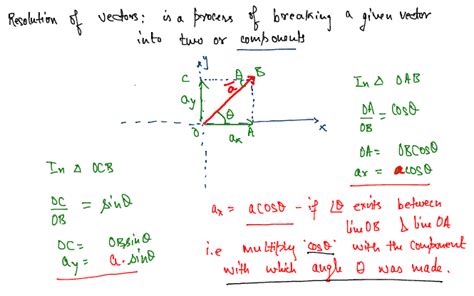 Resolution of vectors: is a process of breaking a given vector
into two or components
y
C
θ
B
a
ay
θ
O
ax
A
x
In Δ OAB
OA/OB = cosθ
OA = OBcosθ
ax = acosθ
In Δ OCB
OC/OB = sinθ
OC = OBsinθ
ay = a.sinθ
ax = acosθ - if ∠θ exits between
line OB & line OA
i.e multiply 'cosθ' with the component
with which angle θ was made.